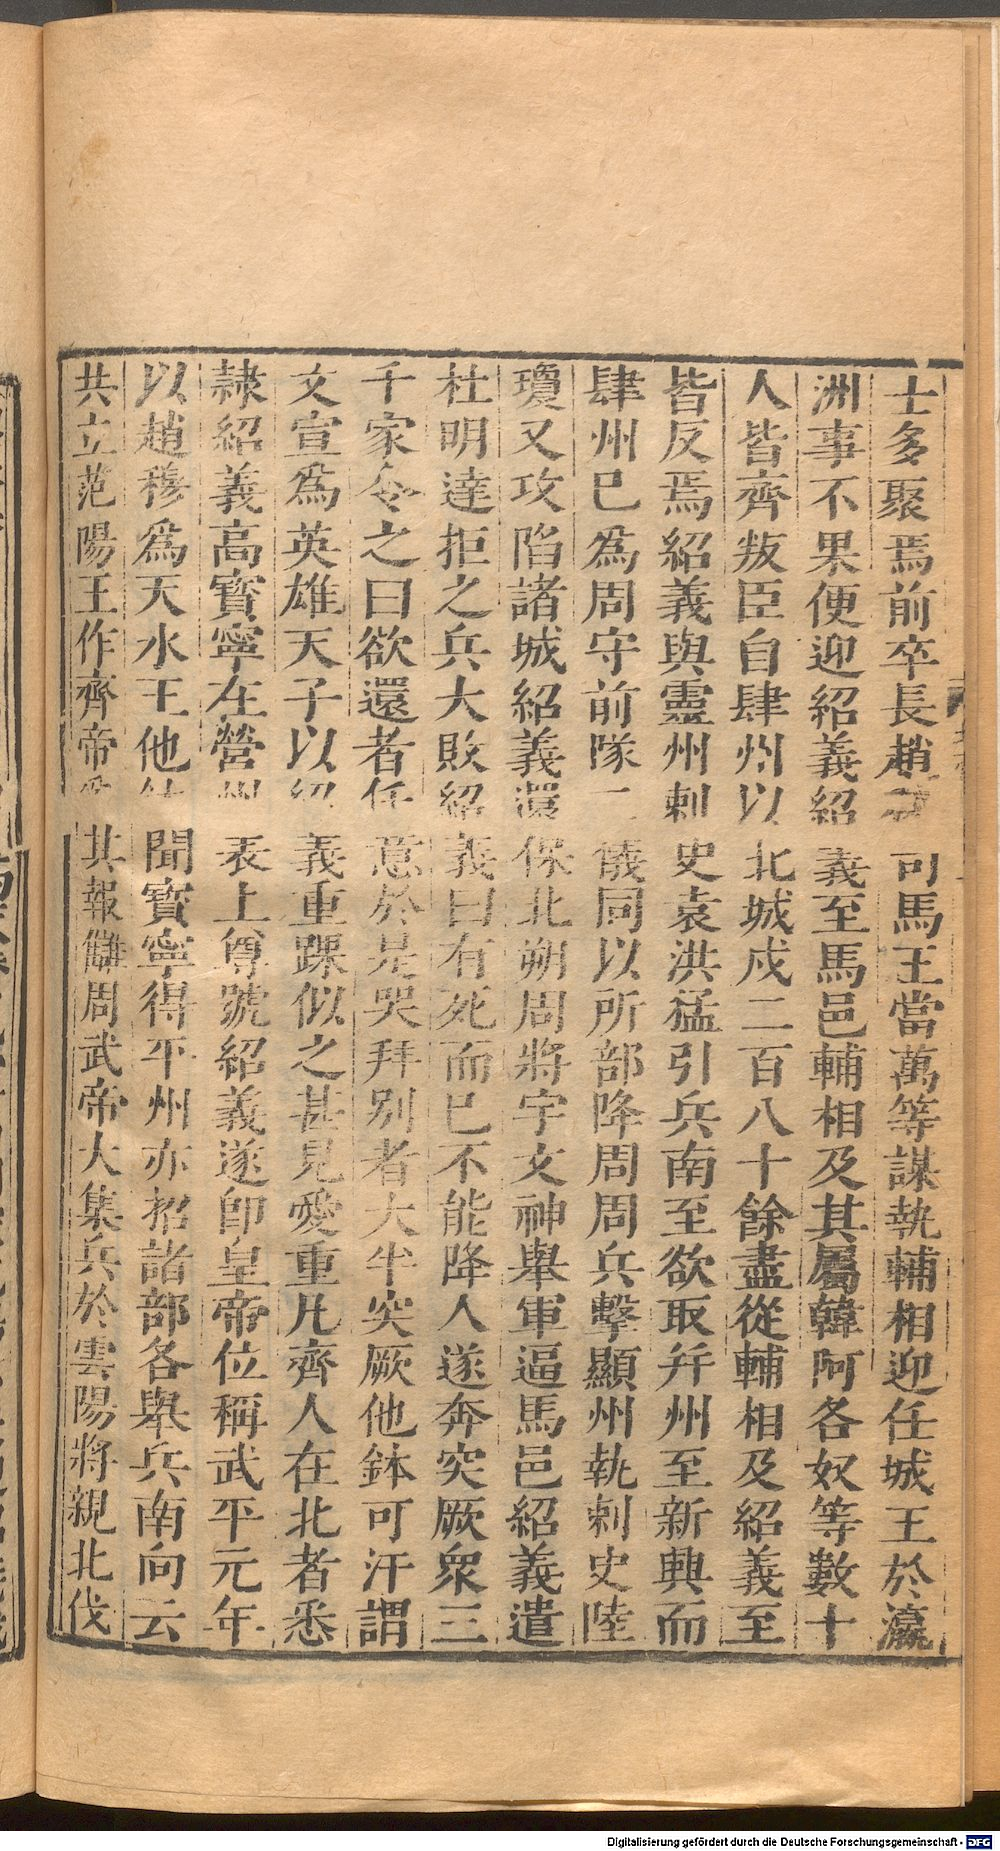 士多聚焉前卒長趙司馬王當萬等謀執輔相迎任城王於瀛
洲事不果便迎紹義紹義至馬邑輔相及其屬韓阿各奴等數十
人皆齊叛臣自肆州以北城戍二百八十餘盡從輔相及紹義至
皆反焉紹義與靈州刺史袁洪猛引兵南至欲取并州至新興而
肆州已爲周守前隊二儀同以所部降周周兵擊顯州執刺史陸
瓊又攻陷諸城紹義還保北朔周將宇文神舉軍逼馬邑紹義遣
杜明達拒之兵大敗紹義曰有死而已不能降人遂奔突厥衆三
千家令之曰欲還者任意於是哭拜別者大半突厥他鉢可汗謂
文宣爲英雄天子以紹義重踝似之甚見愛重凡齊人在北者悉
隷紹義高寳寧在營州表上尊號紹義遂卽皇帝位稱武平元年
以趙穆爲天水王他聞寳寧得平州亦招諸部各舉兵南向云
共立范陽王作齊帝爲其報讎周武帝大集兵於雲陽將親北伐
Digitalisierung gefördert durch die Deutsche Forschungsgemeinschaft - DFG